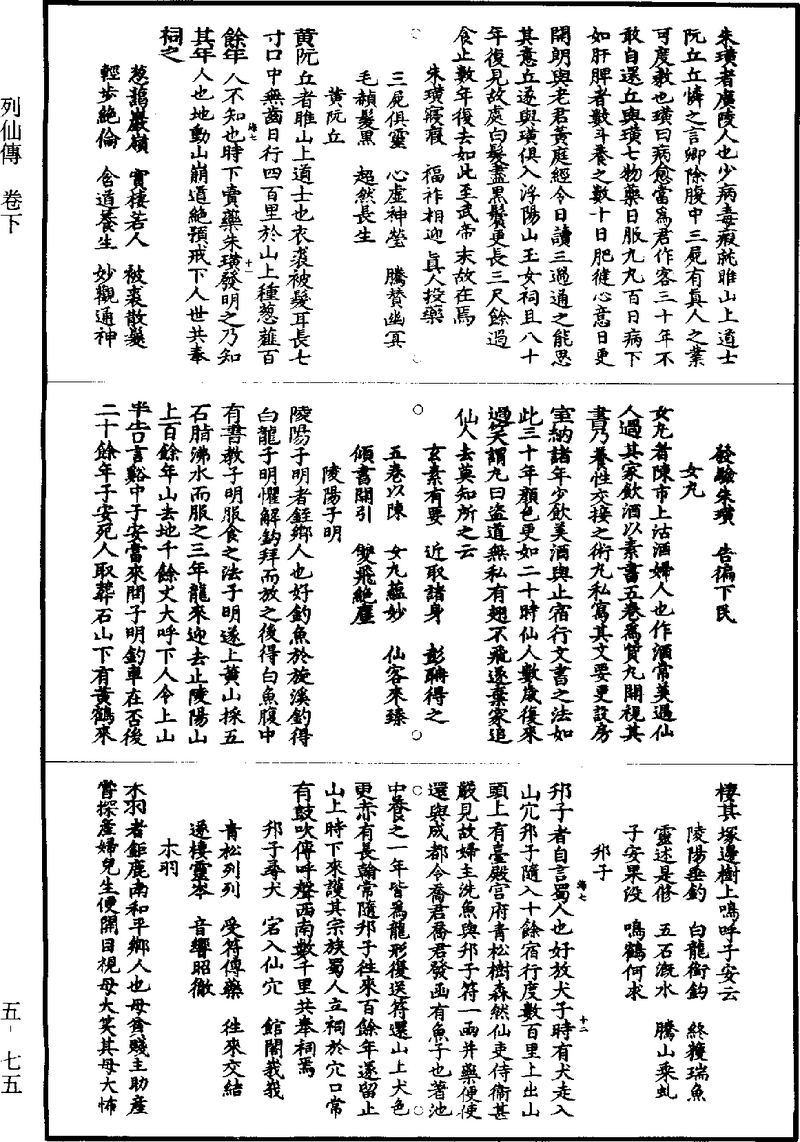 列仙傳　卷下
五-七五
朱璜者廣陵人也少病毒瘕就睢山上道士
阮丘丘憐之言卿除腹中三屍有真人之業
可度教也璜曰病愈當為君作客三十年不
敢自還丘與璜七物藥日服九九百日病下
如肝脾者數斗養之數十日肥徤心意日更
開朗與老君黃庭經令日讀三過通之能思
其意丘遂與璜俱入浮陽山玉女祠且八十
年復見故處白髮盡黑鬢更長三尺餘過
食止數年復去如此至武帝末故在焉
朱璜寢瘕　福祚相迎　真人投藥
三屍俱靈　心虛神瑩　騰贊幽冥
毛赬髮黑　超然長生
黃阮丘
黃阮丘者睢山上道士也衣裘被髮耳長七
寸口中無齒日行四百里於山上種葱薤百
餘年人不知也時下賣藥朱璜發明之乃知
其年人也地動山崩道絕預戒下人世共奉
祠之
葱藹巖嶺　實棲若人　被裘散髮
輕步絕倫　含道養生　妙觀通神
發驗朱璜　告徧下民
女丸
女丸者陳市上沽酒婦人也作酒常美遇仙
人過其家飲酒以素書五卷為質丸開視其
書乃養性交接之術丸私寫其文要更設房
室納諸年少飲美酒與止宿行文書之法如
此三十年顏色更如二十時仙人數歲復來
過笑謂丸曰盜道無私有翅不飛遂棄家追
仙人去莫知所之云
玄素有要　近取諸身　彭聃得之
五卷以陳　女丸蘊妙　仙客來臻
傾書開引　雙飛絕塵
陵陽子明
陵陽子明者銍鄉人也好釣魚於旋溪釣得
白龍子明懼解鈎拜而放之後得白魚腹中
有書教子明服食之法子明遂上黃山採五
石脂沸水而服之三年龍來迎去止陵陽山
上百餘年山去地千餘丈大呼下人令上山
半告言谿中子安當來問子明釣車在否後
二十餘年子安死人取葬石山下有黃鶴來
棲其塚邊樹上鳴呼子安云
陵陽垂釣　白龍銜鈎　終獲瑞魚
靈述是修　五石溉水　騰山乘虬
子安果沒　鳴鶴何求
邗子
邗子者自言蜀人也好放犬子時有犬走入
山穴邗子隨入十餘宿行度數百里上出山
頭上有臺殿宮府青松樹森然仙吏侍衛甚
嚴見故婦主洗魚與邗子符一函并藥便使
還與成都令喬君喬君發函有魚子也著池
中養之一年皆為龍形復送符還山上犬色
更赤有長翰常隨邗子往來百餘年遂留止
山上時下來護其宗族蜀人立祠於穴口常
有鼓吹傳呼聲西南數千里共奉祠焉
邗子尋犬　宕入仙穴　館閣峩峩
青松列列　受符傳藥　往來交結
遂棲靈岑　音響昭徹
木羽
木羽者鉅鹿南和平鄉人也母貧賤主助產
嘗探產婦兒生便開目視母大笑其母大怖